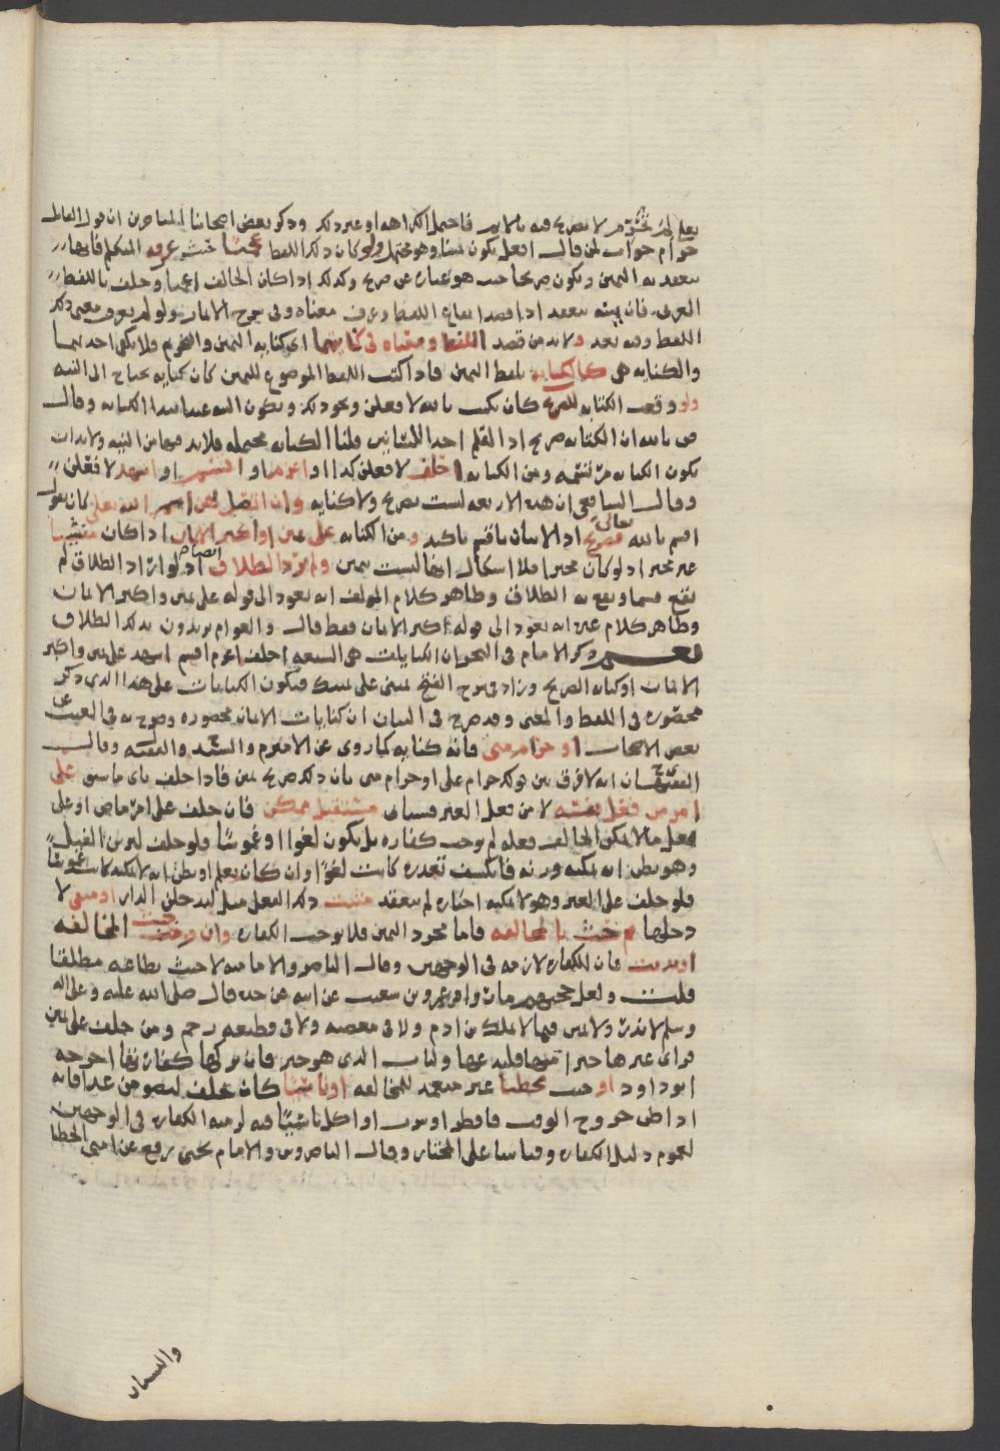 لا تصريح فيه بالايمان فاحتمل الكراهه او غير ذلك وذكر بعض اصحابنا المتاخرين ان قول القايل
حرام جواب لمن قال افعل يكون يمينا وهو محتمل ولو كان ذلك اللفظ عجميا حيث عرفه المتكلم فانها
تنعقد به اليمين ويكون صريحا حيث هو عباره عن صريح وكذلك اذا كان الحالف اعجميا وحلف باللفظ
العربي فان يمينه تنعقد اذا قصد ايقاع اللفظ وعرف معناه وفي شرح الابانه ولو لم يعرف معنى ذلك
اللفظ وفيه بعد ولا بد من قصد اللفظ ومعناه في كنايتهما اي كنايه اليمين والتحريم ولا يكفي احدهما
والكنايه هي كالكتابه بلفظ اليمين فاذا كتب اللفظ الموضوع لليمين كان كنايه يحتاج الى النيه
ولو وقعت الكتابه للصريح كان يكتب بالله لافعلن ونحو ذلك وتكون النيه عند ابتدا الكتابه وقال
ص بالله ان الكتابه صريح اذ القلم احد اللسانين قلنا الكتابه محتمله فلا بد فيها من النيه ولا بد ان
تكون الكتابه مرتسمه ومن الكنايه احلف لافعلن كذا او اعزم او اقسم او اشهد لافعلن
وقال الشافعي ان هذه الاربعه ليست بصريح ولا كنايه وان اتصل بهن اسم الله تعالى كان يقول
اقسم بالله تعالى فصريح اذ الاتيان باقسم تاكيد ومن الكنايه علي يمين او اكبر الايمان اذا كان منشيا
غير مخبر اذ لو كان مخبرا فلا اشكال انها ليست بيمين ولم يرد الطلاق ايضا اذ لو اراد الطلاق لم
يقع قسما ويقع به الطلاق وظاهر كلام المولف انه يعود الى قوله علي يمين واكبر الايمان
وظاهر كلام غيره انه يعود الى قوله اكبر الايمان فقط قال والعوام يريدون بذلك الطلاق
ذكر الامام في البحر ان الكنايات هي السبعه احلف اعزم اقسم اشهد علي يمين واكبر
الايمان او كتابه الصريح وزاد في شرح الفتح يميني على يمينك فتكون الكنايات على هذا الذي ذكر
محصوره في اللفظ والمعنى وقد صرح في البيان ان كنايات الايمان محصوره وصرح به في الغيث عن
بعض الاصحاب او حرام مني فانه كنايه كما روى عن الامير م والسيد والفقيه وقال
الفقيهان انه لا فرق بين قوله حرام علي او حرام مني بان ذلك صريح يمين فاذا حلف باي ما سبق على
امر من فعل نفسه لا من فعل الغير فسياتي مستقبل ممكن فان حلف على امر ماض او على
فعل ما لا يمكن الحالف فعله لم يوجب كفاره بل يكون لغوا او غموسا فلو حلف ليزنن الفيل
وهو يظن انه يمكنه وزنه فانكشف تعذره كانت لغوا وان كان يعلم او يظن انه لا يمكنه كانت غموسا
فلو حلف على الغير وهو لا يمكنه اجباره لم تنعقد مثبت ذلك الفعل مثل ليدخلن الدار او منفي لا
دخلها ثم حنث بالمخالفه فاما مجرد اليمين فلا يوجب الكفاره وان وجبت المخالفه
او ندبت فان الكفاره لازمه في الوجهين وقال الناصر والاماميه لا حنث بطاعه مطلقا
قلت ولعل حجتهم ما رواه عمرو بن شعيب عن ابيه عن جده قال صلى الله عليه وعلى اله
وسلم لا نذر ولا يمين فيما لا يملك بن ادم ولا في معصيه ولا في قطيعه رحم ومن حلف على يمين
فراى غيرها خيرا منها فليدعها وليات الذي هو خير فان تركها كفارتها اخرجه
ابو داود او حنث مخطيا غير متعمد للمخالفه او ناسيا كان يحلف ليصومن غدا فانه
اذا ظن خروج الوقت فافطر او شرب او اكل ناسيا فيه لزمته الكفاره في الوجهين
لعموم دليل الكفاره وقياسا على المختار وقال الناصر وش والامام يحيى رفع عن امتي الخطا
والنسيان